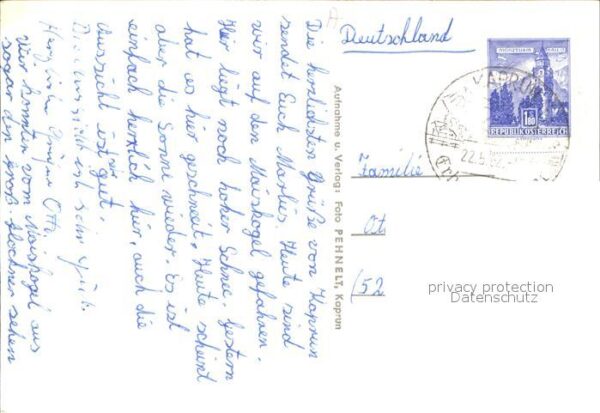 Die herzlichsten Grüße von Kaprun
sendet Euch Marlies. Heute sind
wir auf den Maiskogel gefahren.
Hier liegt noch hoher Schnee. Gestern
hat es hier geschneit. Heute scheint
aber die Sonne wieder. Es ist
einfach herrlich hier, auch die
Aussicht ist gut.
Herzliche Grüße Otto
Wir konnten vom Maiskogel aus
sogar den Groß-Glockner sehen
Aufnahme u. Verlag: Foto PEHNELT, Kaprun
Deutschland
REPUBLIK ÖSTERREICH
KAPRUN
22.5.62
Familie
Ott
(52
privacy protection
Datenschutz